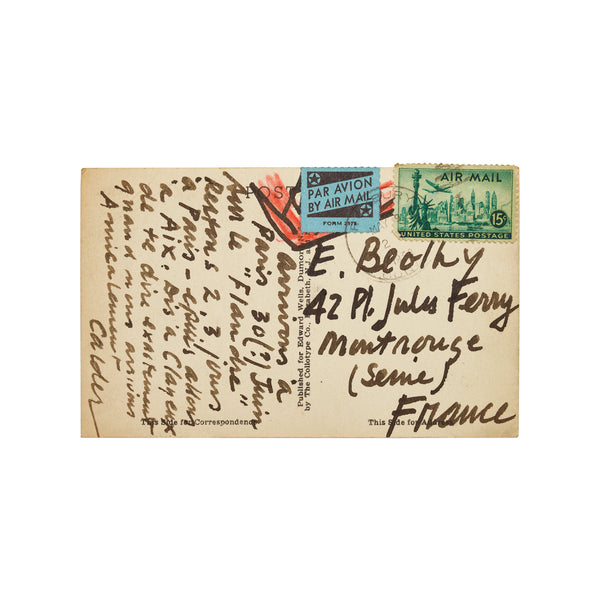 POST
PAR AVION
BY AIR MAIL
FORM 2978
AIR MAIL
15¢
UNITED STATES POSTAGE
E. Beothy
42 Pl. Jules Ferry
Montrouge
(Seine)
France
arrivons à
Paris 30(?) Juin
sur le "Flandre"
Restons 2, 3 jours
à Paris - puis
à Aix.
de te dire exactement
quand nous arrivions
Amicalement
Calder
Published for Edward Wells, Dumon
by The Collotype Co., Elizabeth, N.J.
This Side for Correspondence
This Side for Address